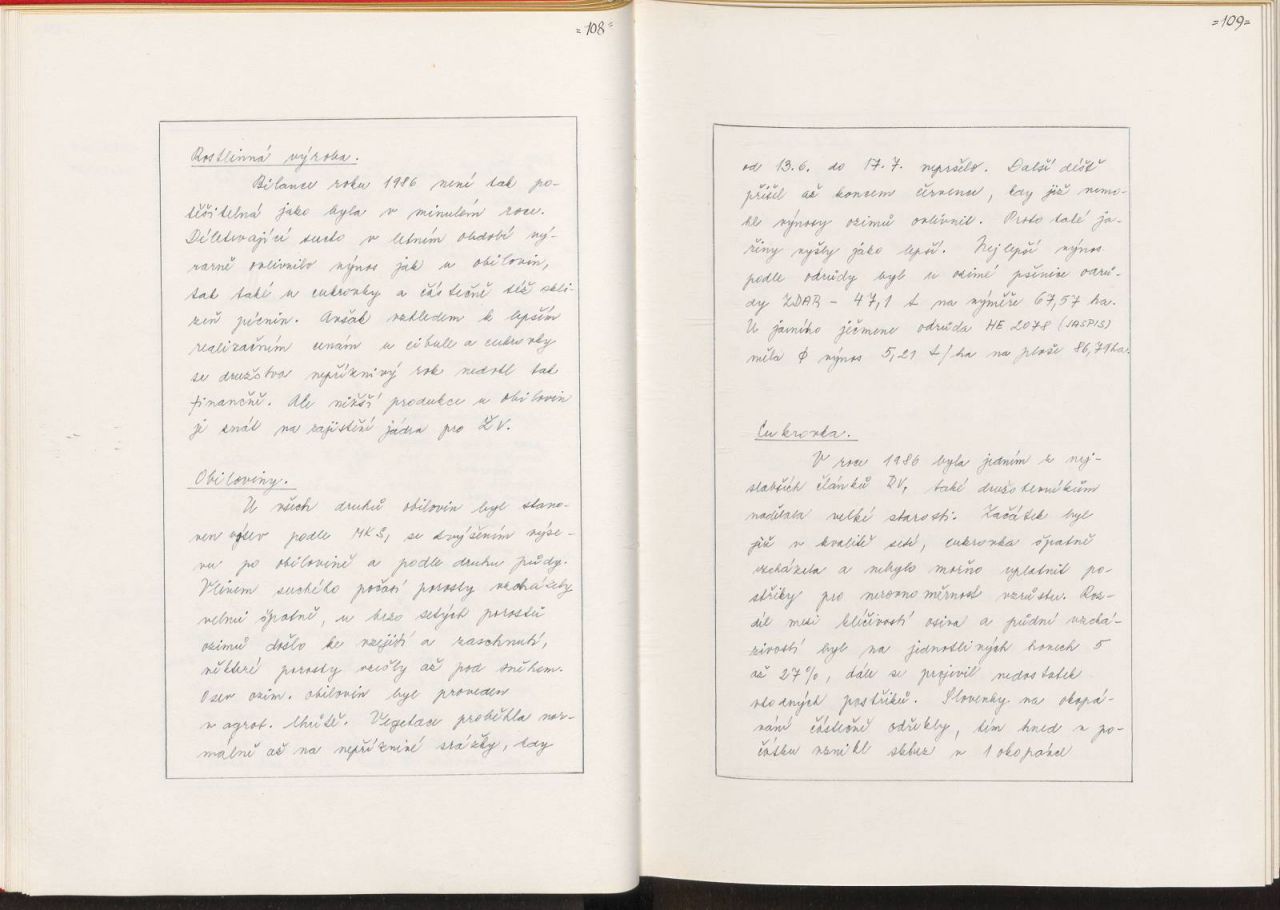 =108=
Rostlinná výroba.
Bilance roku 1986 není tak po-
těšitelná jako byla v minulém roce.
Déletrvající sucho v letním období vý-
razně ovlivnilo výnos jak u obilovin,
tak také u cukrovky a částečně též skli-
zeň pícnin. Avšak vzhledem k lepším
realizačním cenám u cibule a cukrovky
se družstva nepříznivý rok nedotl tak
finančně. Ale nižší produkce u obilovin
je znát na zajištění jádra pro ŽV.
Obiloviny.
U všech druhů obilovin byl stano-
ven výsev podle MKS, se zvýšením výse-
vu po obilovině a podle druhu půdy.
Vlivem suchého počasí porosty vzcházely
velmi špatně, u brzo setých porostů
ozimů došlo ke vzejití a zaschnutí,
některé porosty vzešly až pod sněhem.
Osev ozim. obilovin byl proveden
v agrot. lhůtě. Vegetace proběhla nor-
málně až na nepříznivé srážky, kdy
=109=
od 13.6. do 17.7. nepršelo. Další déšť
přišel až koncem července, kdy již nemo-
hl výnosy ozimů ovlivnit. Proto také ja-
řiny vyšly jako lepší. Nejlepší výnos
podle odrůdy byl u ozimé pšenice odrů-
dy ZDAR - 47,1 t na výměře 67,57 ha.
U jarního ječmene odrůda HE 2078 (JASPIS)
měla ϕ výnos 5,21 t/ha na ploše 86,79 ha.
Cukrovka.
V roce 1986 byla jedním z nej-
slabších článků RV, také družstevníkům
nadělala velké starosti. Začátek byl
již v kvalitě setí, cukrovka špatně
vzcházela a nebylo možno uplatnit po-
střiky pro nerovnoměrnost vzrůstu. Roz-
díl mezi klíčivostí osiva a půdní vzchá-
zivostí byl na jednotlivých honech 5
až 27%, dále se projevil nedostatek
vhodných postřiků. Slovenky na okopá-
vání částečně odřekly, tím hned v po-
čátku vznikl skluz v 1 okopávce